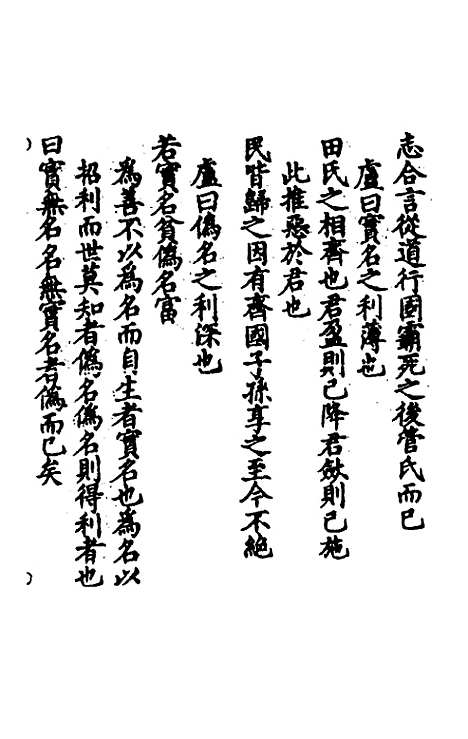 志合言從道行國霸死之後管氏而已
盧曰實名之利薄也
田氏之相齊也君盈則已降君斂則已施
此推惡於君也
民皆歸之因有齊國子孫享之至今不絕
盧曰偽名之利深也
若實名貧偽名富
為善不以為名而自生者實名也為名以
招利而世莫知者偽名偽名則得利者也
曰實無名名無實名者偽而已矣